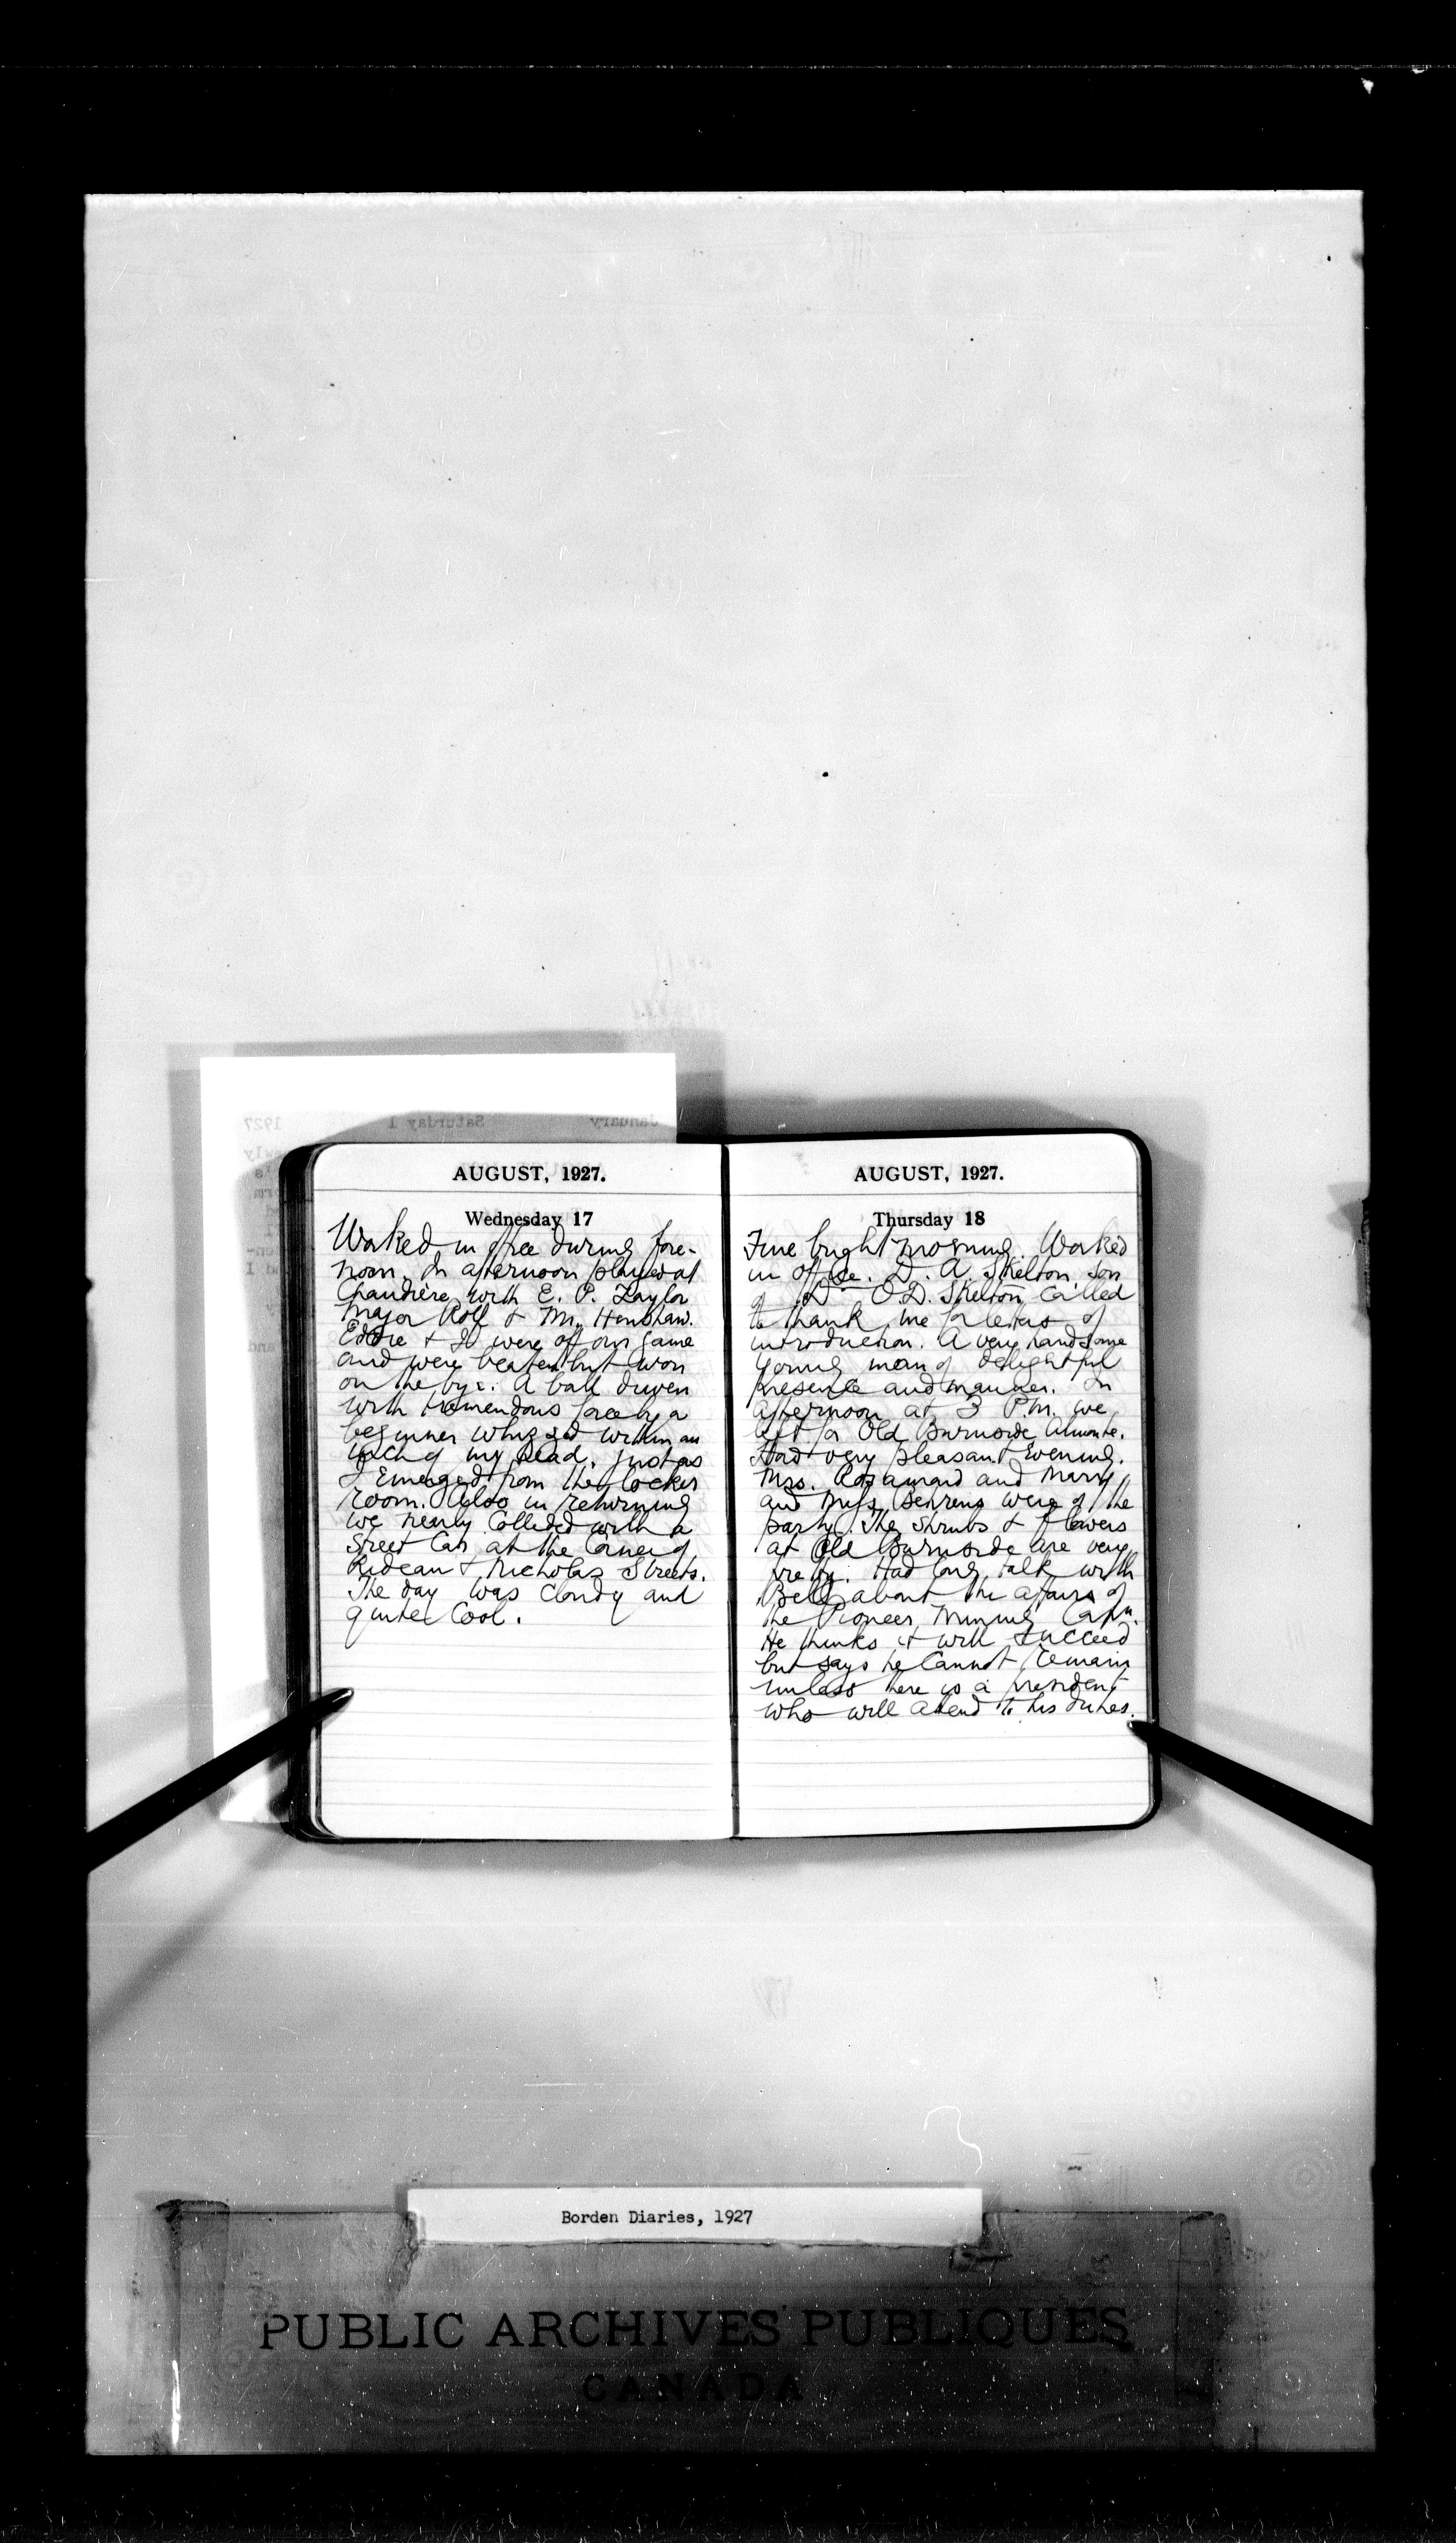 AUGUST, 1927.
Wednesday 17
Worked in office during fore-
noon. In afternoon played at
Chaudière with E. P. Taylor
Major Rolf & Mr. Henshaw.
Eddie & I were off our game
and were beaten but won
on the bye. A ball driven
with tremendous force by a
beginner whizzed within an
inch of my head, just as
I emerged from the locker
room. Also in returning
we nearly collided with a
Street Car at the Corner of
Rideau & Nicholas Streets.
The day was cloudy and
quite Cool.
AUGUST, 1927.
Thursday 18
Fine bright morning. Worked
in office. D. A. Skelton, son
of Dr O. D. Skelton called
to thank me for letters of
introduction. A very handsome
young man of delightful
presence and manner. In
afternoon at 3 P.M. we
left for Old Burnside Almonte.
Had very pleasant Evening.
Mrs. Rosamond and Mary
and Miss were of the
party. The shrubs & flowers
at Old Burnside are very
pretty. Had long talk with
Bell about the affairs of
the Pioneer Mining Corpn.
He thinks it will succeed
but says he Cannot remain
unless there is a president
who will attend to his duties.
January Saturday 1 1927
Borden Diaries, 1927
PUBLIC ARCHIVES PUBLIQUES
CANADA